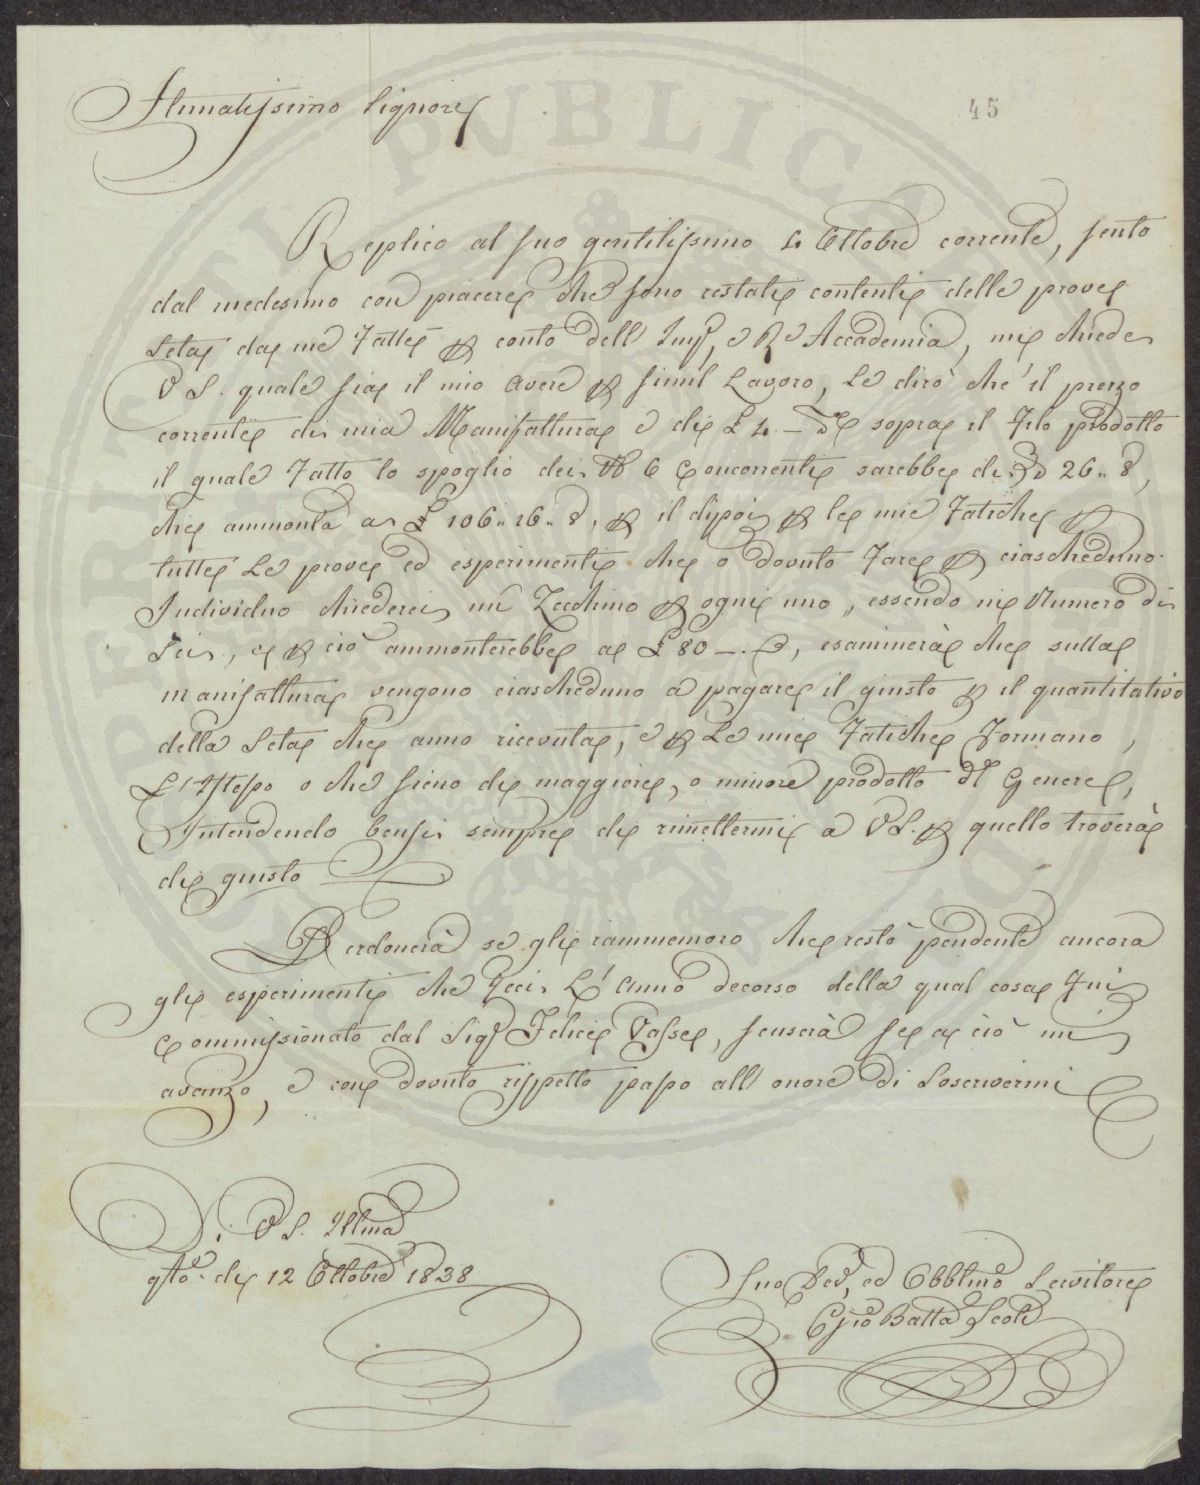 Stimatissimo Signore
45
Replico al suo gentilissimo 4 Ottobre corrente, sento
dal medesimo con piacere che sono restati contenti delle prove
Seta da me Fatte p conto dell' Imp, e R Accademia, mi chiede
V S. quale sia il mio avere p simil Lavoro, Le dirò che il prezzo
corrente di mia Manifattura è di £ 4.— sopra il Filo prodotto
il quale Fatto lo spoglio dei N 6 Concorrenti sarebbe di 26.. 8,
che ammonta a £ 106.. 16.. 8, p il dipoi p le mie Fatiche p
tutte Le prove ed esperimenti che o dovuto Fare p ciascheduno
Individuo chiederei un Zecchino p ogni uno, essendo in Numero di
Sei, e p ciò ammonterebbe a £ 80 —.—, esaminerà che sulla
manifattura vengono ciascheduno a pagare il giusto p il quantitativo
della Seta che anno ricevuta, e p Le mie Fatiche Formano,
L' Istesso o che sieno di maggiore, o minore prodotto dl Genere,
Intendendo bensi sempre di rimettermi a V S. p quello troverà
di giusto
Perdonerà se gli rammemoro che restò pendente ancora
gli esperimenti che Feci L' Anno decorso della qual cosa Fui
Commissionato dal Sigr Felice Vasse, scuserà se a ciò mi
avanzo, e con dovuto rispetto passo all' onore di Soscrivermi
Di V S. Illma
qsto di 12 Ottobre 1838
Suo Dev, ed Obblmo Servitore
Gio Batta